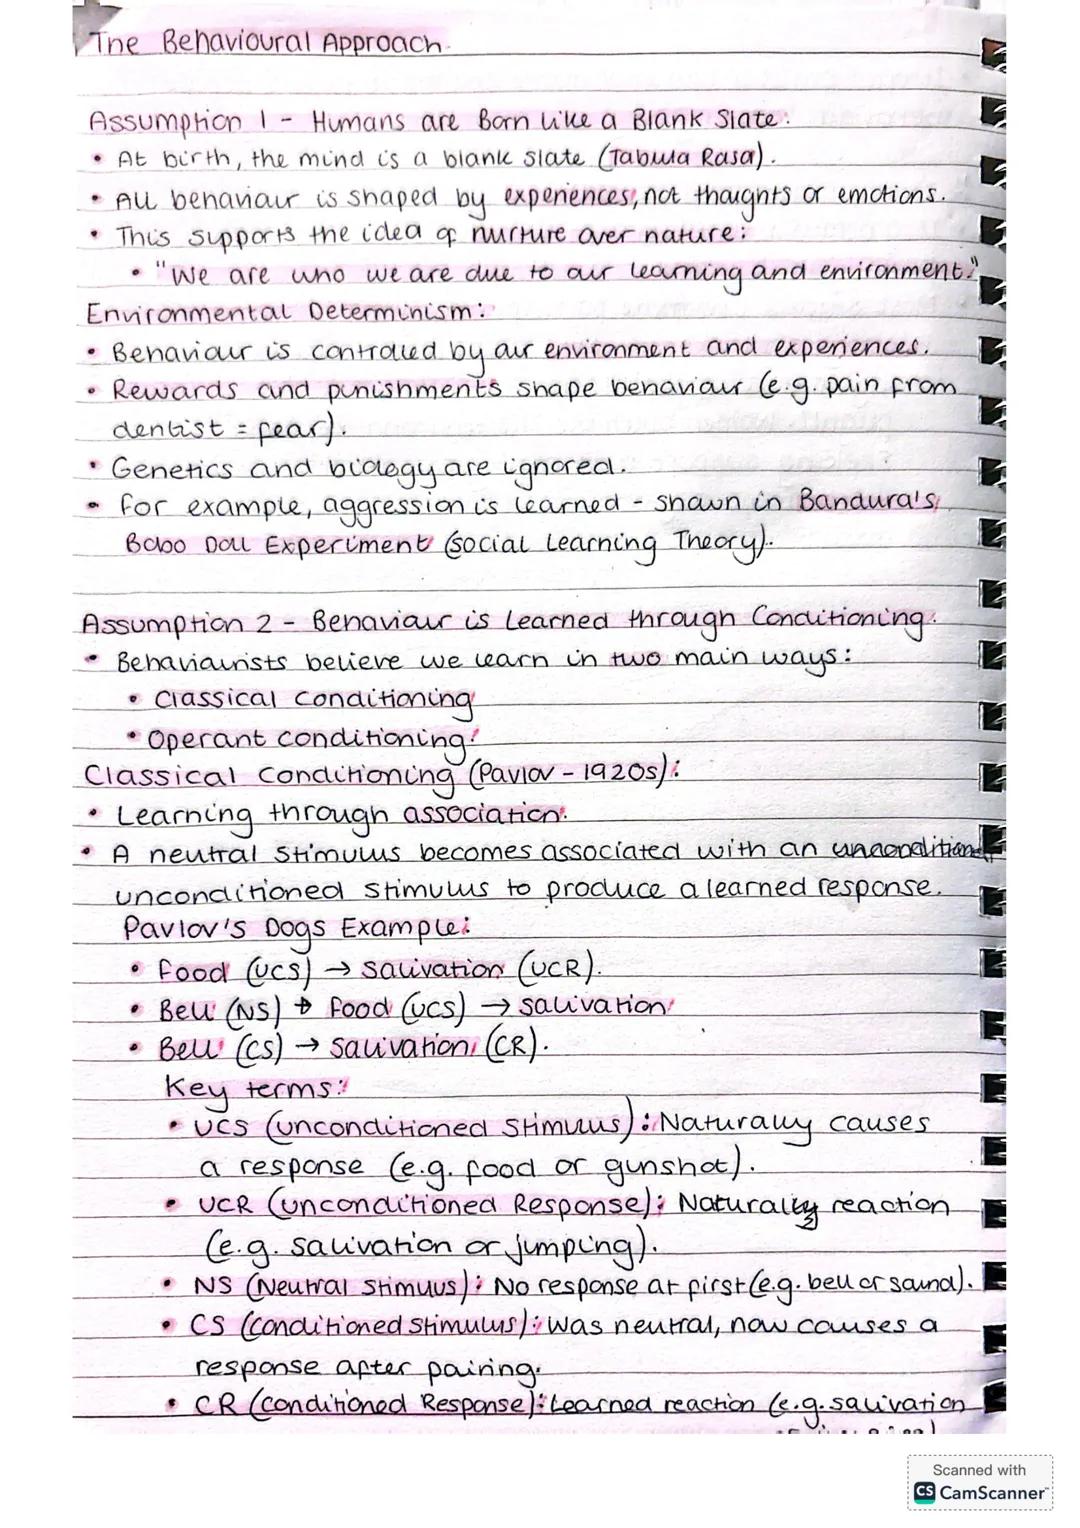 The Behavioural Approach
Assumption 1 - Humans are Born like a Blank Slate:
• At birth, the mind is a blank slate (Tabula Rasa).
• All behaviour is shaped by experiences, not thoughts or emotions.
• This supports the idea of nurture over nature:
• "We are who we are due to our learning and environment."
Environmental Determinism:
• Behaviour is controlled by our environment and experiences.
• Rewards and punishments shape behaviour (e.g. pain from
dentist = fear).
• Genetics and biology are ignored.
• For example, aggression is learned - shown in Bandura's
Bobo Doll Experiment (Social Learning Theory).
Assumption 2 - Behaviour is Learned through Conditioning.
• Behaviourists believe we learn in two main ways:
• Classical Conditioning
• Operant conditioning.
Classical Conditioning (Pavlov - 1920s):
• Learning through association.
• A neutral stimulus becomes associated with an
unconditioned stimulus to produce a learned response.
Pavlov's Dogs Example:
• Food (UCS) → Salivation (UCR).
• Bell (NS) + Food (UCS) → Salivation
• Bell (CS) → Salivation (CR).
Key terms:
• UCS (Unconditioned Stimulus): Naturally causes
a response (e.g. food or gunshot).
• UCR (Unconditioned Response): Naturally reaction
(e.g. salivation or jumping).
• NS (Neutral Stimuus): No response at first (e.g. bell or sound).
• CS (Conditioned Stimulus): Was neutral, now causes a
response after pairing.
• CR (Conditioned Response): Learned reaction (e.g. salivation
Scanned with
CS CamScanner™